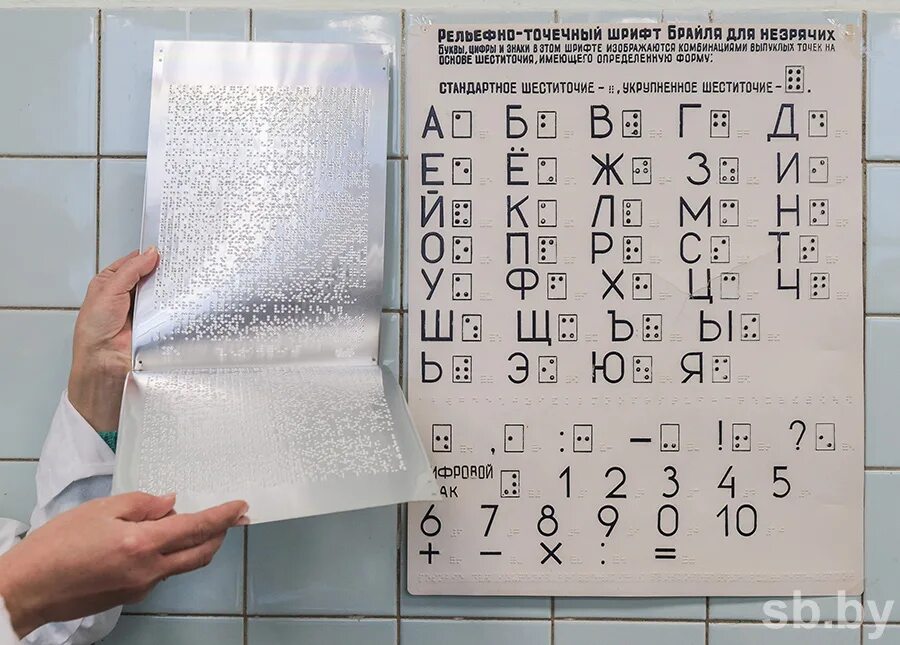 Рельефно-точечный шрифт Брайля для незрячих
Буквы, цифры и знаки в этом шрифте изображаются комбинациями выпуклых точек на
основе шеститочия, имеющего определенную форму:
Стандартное шеститочие - ⠿, укрупненное шеститочие - ⠿.
А Б В Г Д
Е Ё Ж З И
Й К Л М Н
О П Р С Т
У Ф Х Ц Ч
Ш Щ Ъ Ы
Ь Э Ю Я
, : – ! ?
ифровой
ак 1 2 3 4 5
6 7 8 9 0 10
+ – × : =
sb.by